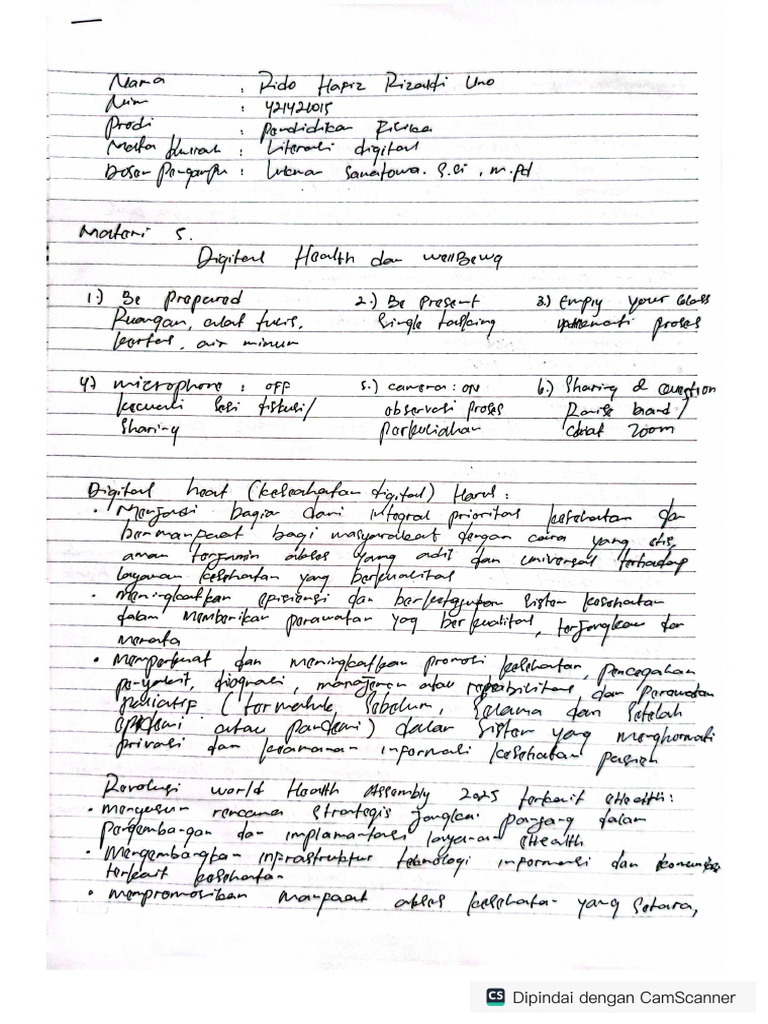 Nama : Rido Hapiz Rizaldi Uno
Nim : 421421015
Prodi : Pendidikan Fisika
Mata Kuliah : Literasi digital
Dosen Pengampu : Lukman Samatowa. S.si , M.pd
Materi 5.
Digital Health dan wellBeing
1.) Be Prepared 2.) Be Present 3.) Empty your Glass
Ruangan, alat tulis, Single tasking nikmati proses
kertas, air minum
4.) microphone : OFF 5.) camera : ON 6.) Sharing & Question
kecuali sesi diskusi/ observasi proses Raise hand /
Sharing perkuliahan chat Zoom
Digital heat (kesehatan digital) Harus :
• Menjadi bagian dari integral prioritas kesehatan dan
bermanpaat bagi masyarakat dengan cara yang etis,
aman terjamin akses yang adil dan universal terhadap
layanan kesehatan yang berkualitas
• Meningkatkan episiensi dan sistem kesehatan
dalam memberikan perawatan yag berkualitas, terjangkau dan
merata
• Memperkuat dan meningkatkan promosi kesehatan, pencegahan
penyakit, diagnosis, manajemen atau rehabilitasi dan perawatan
paliatip (termasuk, sebelum, selama dan setelah
epidemi atau pandemi) dalam sistem yang menghormati
privasi dan keamanan informasi kesehatan pasien
Revolusi world Health Assembly 2025 terkait eHealth :
• menyusun rencana strategis jangka panjang dalam
pengembangan dan implementasi layanan eHealth
• Mengembangkan inprastruktur teknologi informasi dan komunikasi
terkait kesehatan
• mempromosikan manpaat akses kesehatan yang setara,
CS Dipindai dengan CamScanner